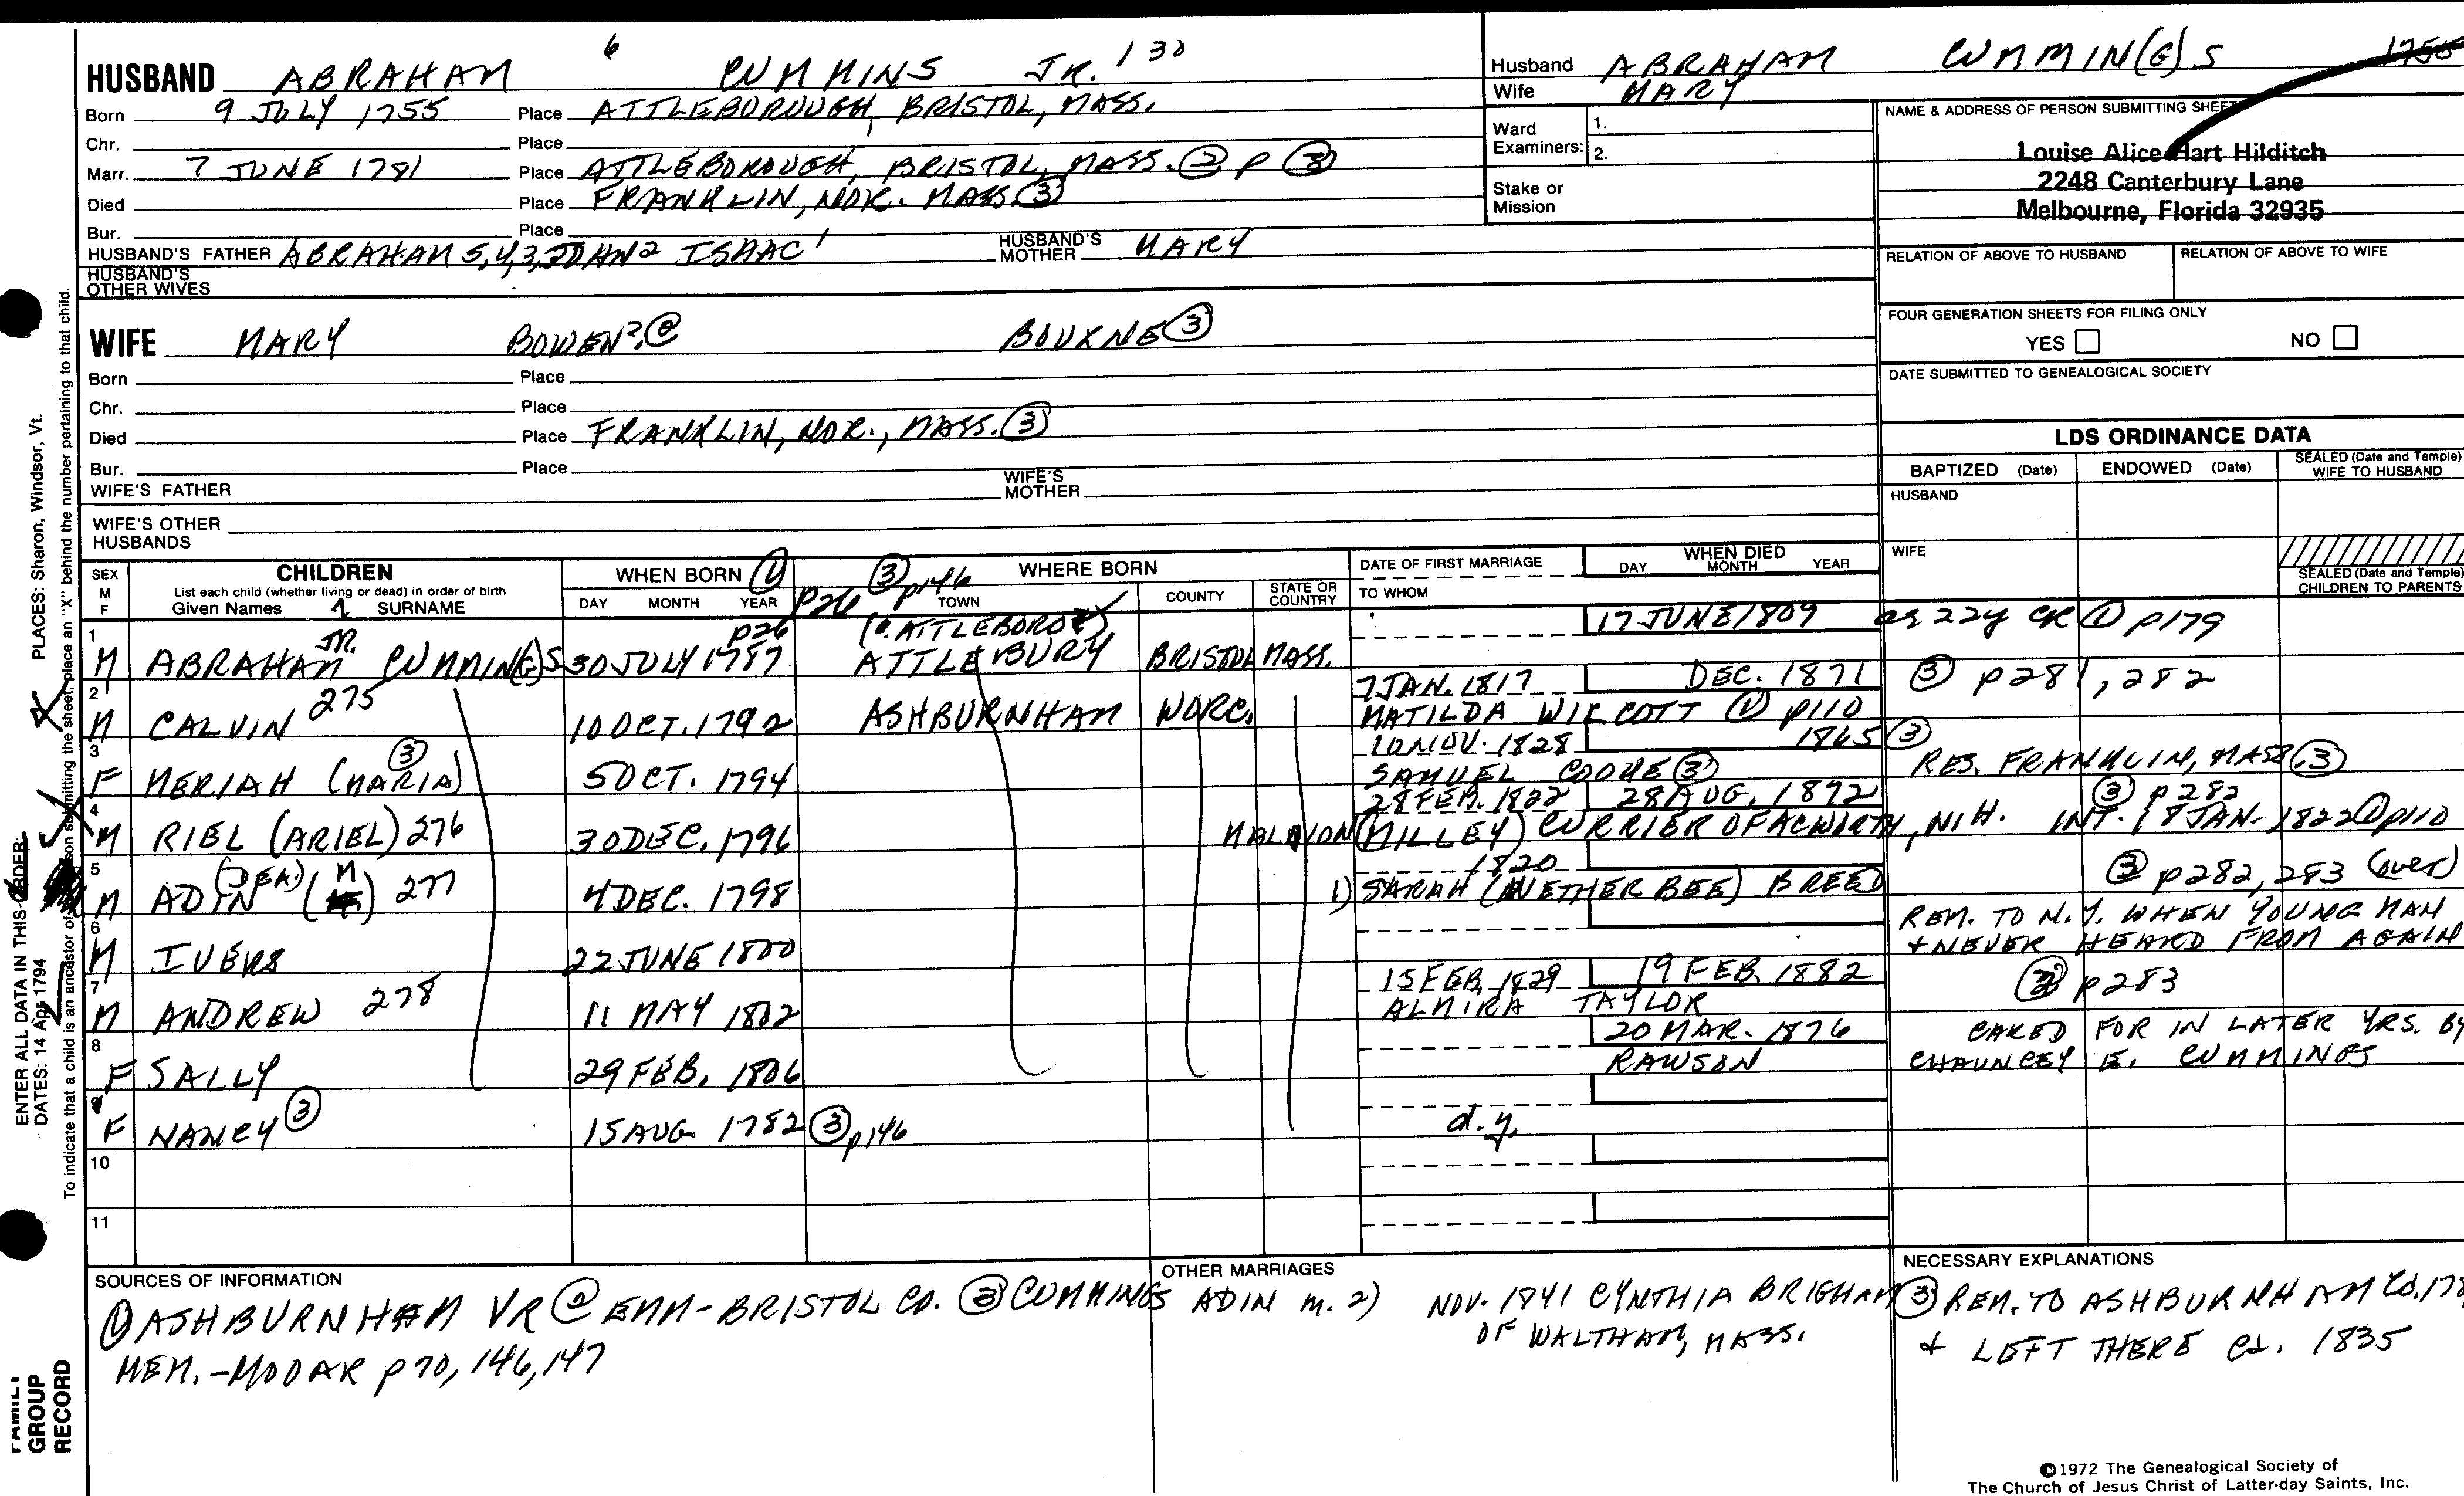 HUSBAND ABRAHAM 6 CUMMINS JR. 130
Born 9 JULY 1755 Place ATTLEBOROUGH, BRISTOL, MASS.
Chr. Place
Marr. 7 JUNE 1781 Place ATTLEBOROUGH, BRISTOL, MASS. ② P ③
Died Place FRANKLIN, NOR. MASS ③
Bur. Place
HUSBAND'S FATHER ABRAHAM 5,4,3, JOHN 2 ISAAC 1 HUSBAND'S MOTHER MARY
HUSBAND'S OTHER WIVES
Husband ABRAHAM CUMMIN(G)S 1755
Wife MARY
Ward Examiners: 1.
2.
Stake or Mission
NAME & ADDRESS OF PERSON SUBMITTING SHEET
Louise Alice Hart Hilditch
2248 Canterbury Lane
Melbourne, Florida 32935
RELATION OF ABOVE TO HUSBAND RELATION OF ABOVE TO WIFE
FOUR GENERATION SHEETS FOR FILING ONLY
YES NO
DATE SUBMITTED TO GENEALOGICAL SOCIETY
WIFE MARY BOWEN? ② BOURNE ③
Born Place
Chr. Place
Died Place FRANKLIN, NOR., MASS. ③
Bur. Place
WIFE'S FATHER WIFE'S MOTHER
WIFE'S OTHER HUSBANDS
LDS ORDINANCE DATA
BAPTIZED (Date) ENDOWED (Date) SEALED (Date and Temple) WIFE TO HUSBAND
HUSBAND
WIFE
SEALED (Date and Temple) CHILDREN TO PARENTS
SEX M F CHILDREN
List each child (whether living or dead) in order of birth
Given Names SURNAME
WHEN BORN ①
DAY MONTH YEAR p26
p26 ③ p146 WHERE BORN
TOWN COUNTY STATE OR COUNTRY
DATE OF FIRST MARRIAGE
TO WHOM
WHEN DIED
DAY MONTH YEAR
1 M ABRAHAM JR. CUMMIN(G)S 30 JULY 1787 (ATTLEBORO) ATTLEBURY BRISTOL MASS. 17 JUNE 1809 ag 22y CR ① p179
2 M CALVIN 275 10 OCT. 1792 ASHBURNHAM WORC. 7 JAN. 1817 DEC. 1871 ③ p281, 282
MATILDA WILCOTT ① p110
3 F MERIAH (MARIA) ③ 5 OCT. 1794 10 NOV. 1828 1865 ③
SAMUEL COOKE ③ RES. FRANKLIN, MASS. ③
4 M RIEL (ARIEL) 276 30 DEC. 1796 28 FEB. 1822 28 AUG. 1872 ③ p282
(MILLEY) CURRIER OF ACWORTH, N.H. INT. 18 JAN. 1822 ① p110
5 M ADIN (DEA.) (M) 277 4 DEC. 1798 1820 ③ p282, 283 (over)
1) SARAH (NETHER BEE) BREED
6 M IVERS 22 JUNE 1800 REM. TO N.Y. WHEN YOUNG MAN
+ NEVER HEARD FROM AGAIN
7 M ANDREW 278 11 MAY 1802 15 FEB. 1829 19 FEB. 1882 ③ p283
ALMIRA TAYLOR
8 F SALLY 29 FEB. 1806 20 MAR. 1876 CARED FOR IN LATER YRS. BY
RAWSON CHAUNCEY E. CUMMINGS
9 F NANCY ③ 15 AUG. 1782 ③ p146 d.y.
10
11
SOURCES OF INFORMATION
① ASHBURNHAM VR ② EMM-BRISTOL CO. ③ CUMMINGS
MEM. -MOOAR p70, 146, 147
OTHER MARRIAGES
ADIN m. 2) NOV. 1841 CYNTHIA BRIGHAM
OF WALTHAM, MASS.
NECESSARY EXPLANATIONS
③ REM. TO ASHBURNHAM Ca.178
+ LEFT THERE Ca. 1835
©1972 The Genealogical Society of
The Church of Jesus Christ of Latter-day Saints, Inc.
ENTER ALL DATA IN THIS ORDER:
DATES: 14 Apr 1794 PLACES: Sharon, Windsor, Vt.
To indicate that a child is an ancestor of the person submitting the sheet, place an "X" behind the number pertaining to that child.
FAMILY
GROUP
RECORD